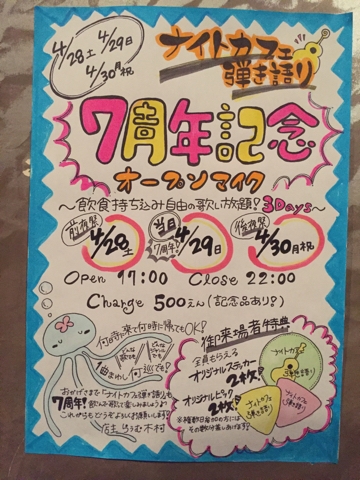 4/28土 4/29日
4/30月祝
ナイトカフェ
弾き語り
7周年記念
オープンマイク
～飲食持ち込み自由の歌い放題!3Days～
前夜祭 4/28土
当日 7周年! 4/29日
後夜祭 4/30月祝
Open 17:00 Close 22:00
Charge 500えん(記念品あり?)
何時に来て何時に帰ってもOK!
1曲まわし何巡でも?
おかげさまで「ナイトカフェ弾き語り」も
7周年!
これからもどうぞよろしくお願いします!
店主 らりむ木村
御来場者特典
全員もらえる
オリジナルステッカー
2枚?
オリジナルピック
2枚?
※複数日参加の方には
その数だけ差しあげます?
ナイトカフェ
弾き語り
ナイトカフェ
弾き語り
ナイトカフェ
弾き語り